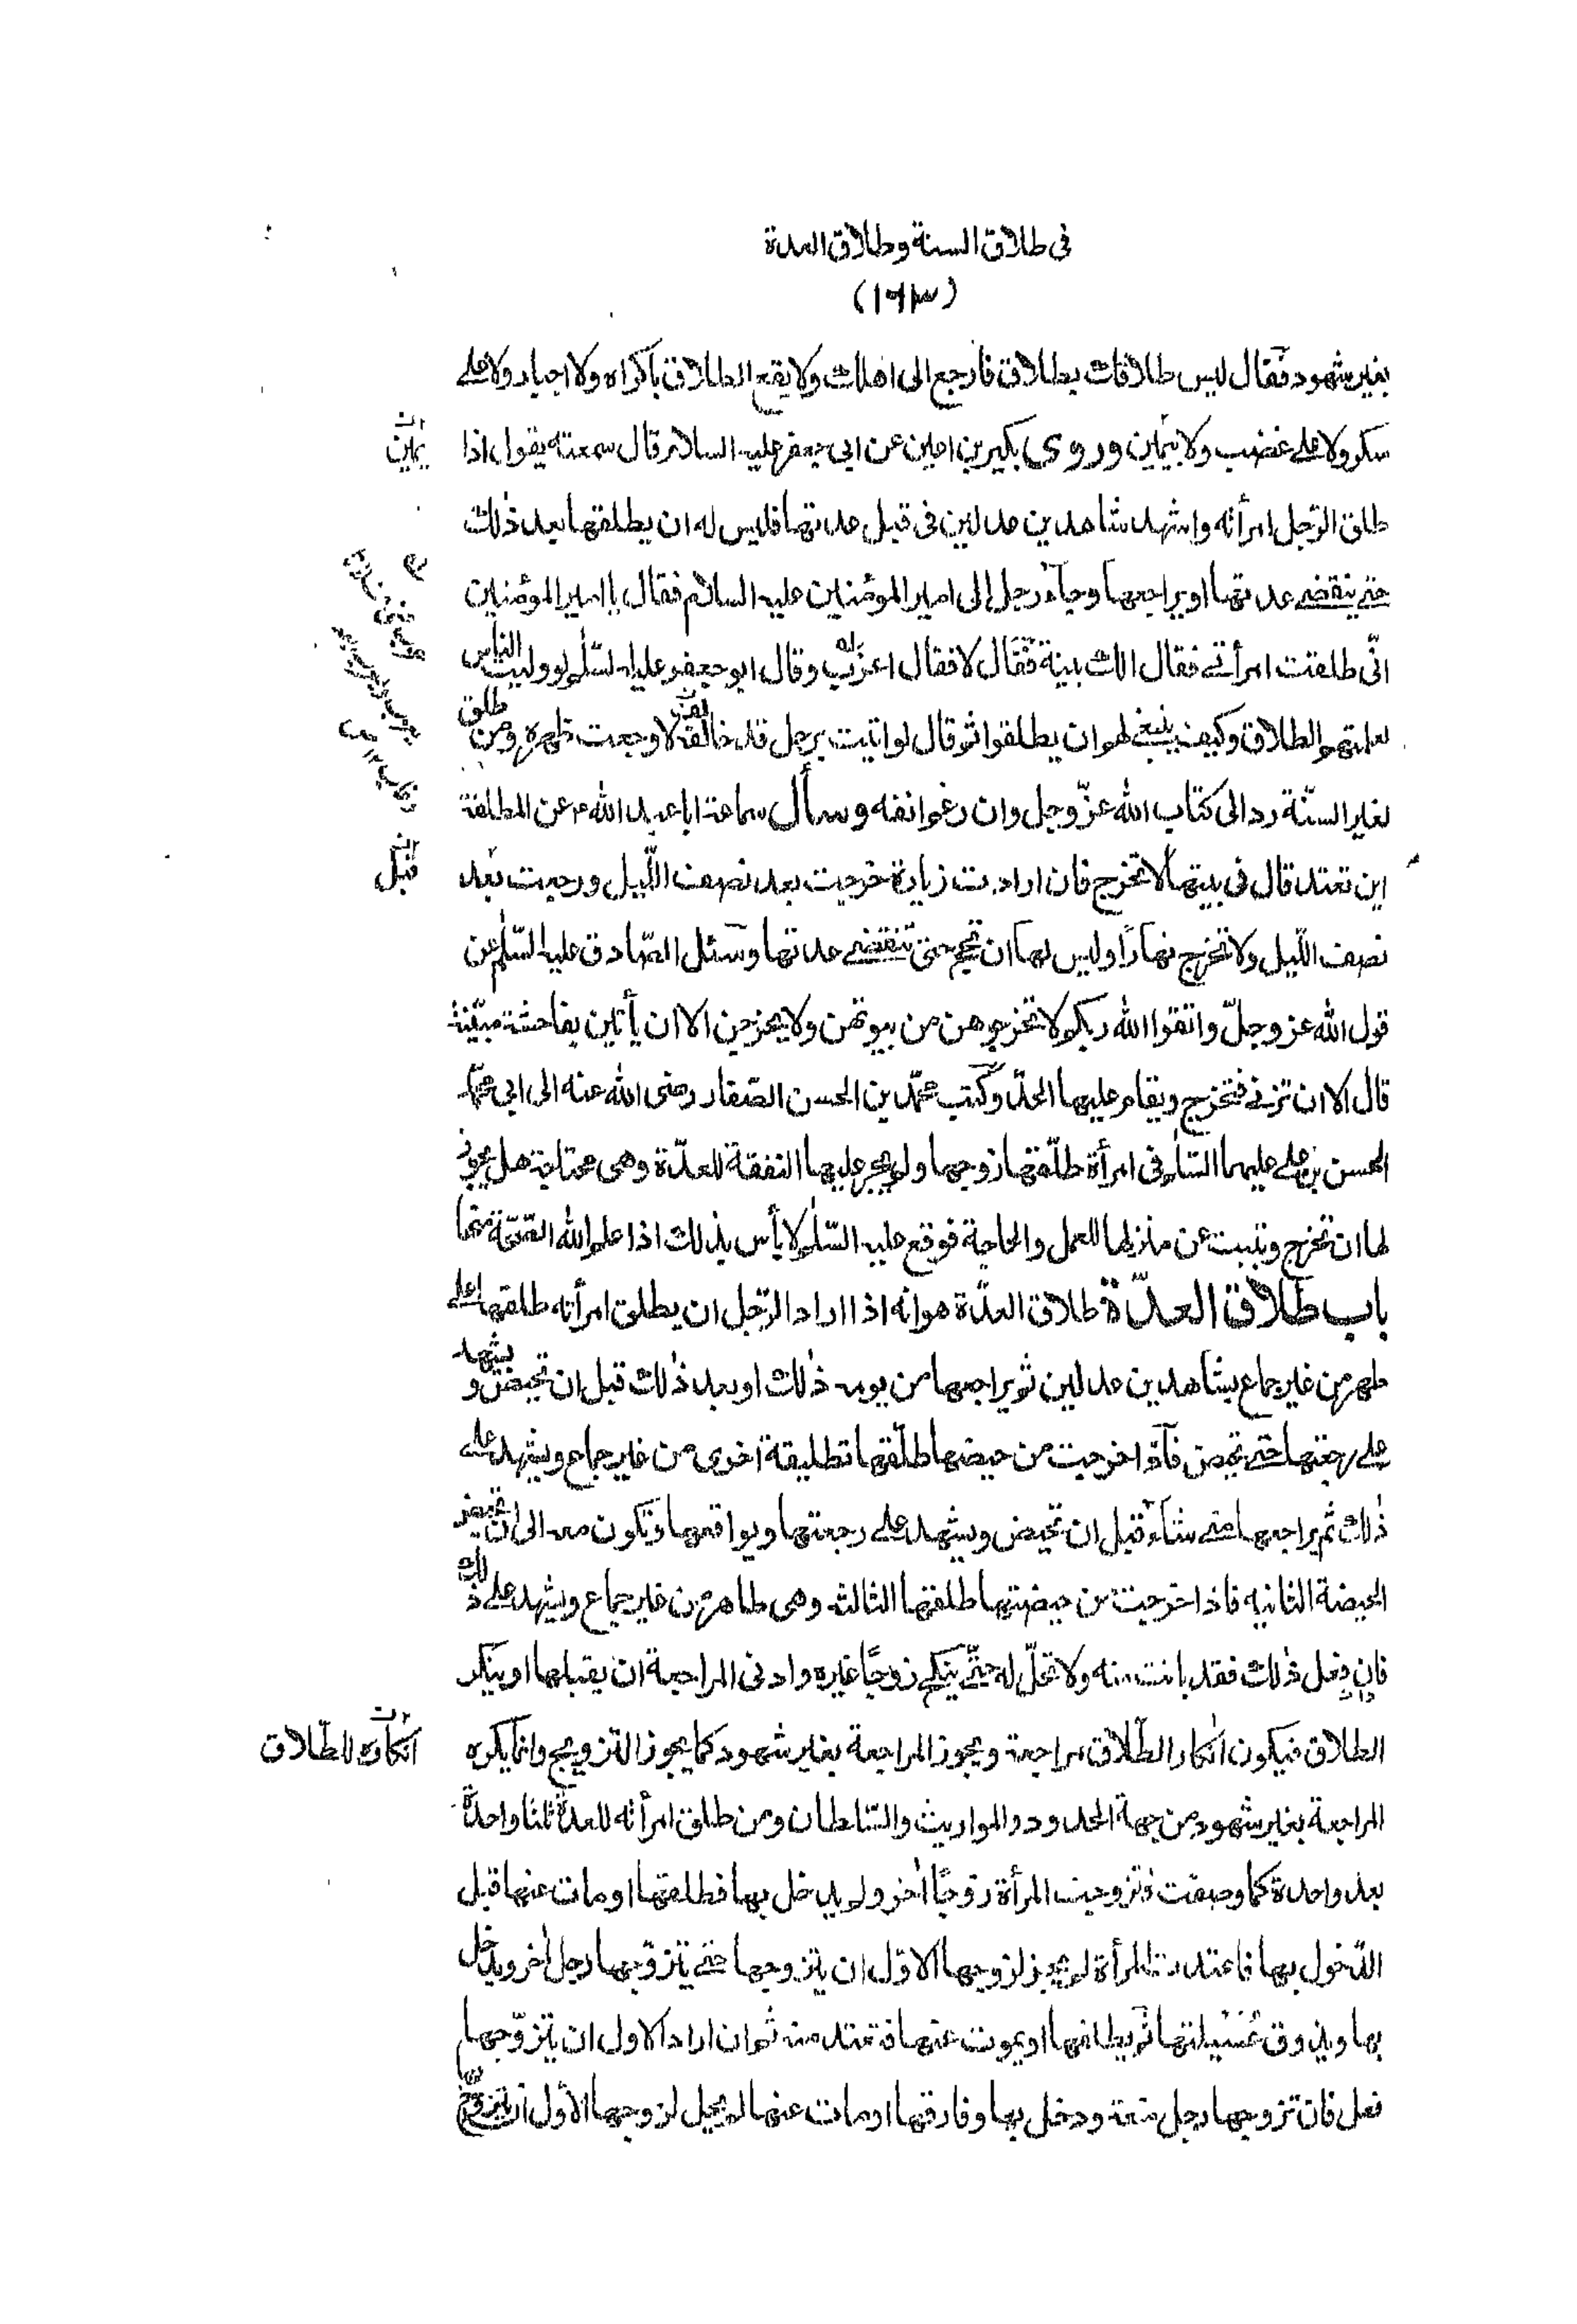 فى طلاق السنة وطلاق العدة
(١٦٣)
بغير شهود فقال ليس طلاقك بطلاق فارجع الى اهلك ولا يقع الطلاق باكراه ولا اجبار ولا على
سكر ولا على غضب ولا يمين وروى بكير بن اعين عن ابى جعفر عليه السلام قال سمعته يقول اذا
يمين
طلق الرّجل امرأته واشهد شاهدين عدلين فى قبل عدتها فليس له ان يطلقها بعد ذٰلك
حتى ينقضى عدتها او يراجعها وجاء رجل إلى امير المؤمنين عليه السلام فقال يا امير المؤمنين
انّى طلقت امرأتى فقال الك بينة فقال لا فقال اعزب وقال ابو جعفر عليه السّلم لو وليت الناس
لعلمتهم الطلاق وكيف ينبغى لهم ان يطلقوا ثم قال لو اتيت برجل قد خالفه لاوجعت ظهره ومن طلق
لغير السنّة رد الى كتاب الله عزّ وجل وان رغم انفه وسأل سماعة ابا عبد الله ع عن المطلقة
اين تعتد قال فى بيتها لا تخرج فان ارادت زيارة خرجت بعد نصف اللّيل ورجعت بعد
قبل
نصف اللّيل ولا تخرج نهارًا وليس لها ان تحج حتى تنقضى عدتها وسئل الصّادق عليه السّلم عن
قول الله عز وجلّ واتقوا الله ربكم لا تخرجوهن من بيوتهن ولا يخرجن الا ان يأتين بفاحشة مبيّنة
قال الا ان تزنى فتخرج ويقام عليها الحدّ وكتب محمّد بن الحسن الصّفار رضى الله عنه الى ابى محمّد
الحسن بن على عليهما السّلم فى امرأة طلّقها زوجها ولم يجر عليها النفقة للعدّة وهى محتاجة هل يجوز
لها ان تخرج وتبيت عن منزلها للعمل والحاجة فوقع عليه السّلم لا بأس بذلك اذا علم الله الصّحّة منها
باب طلاق العدّة طلاق العدّة هو انه اذا اراد الرّجل ان يطلق امرأته طلقها على
طهر من غير جماع بشاهدين عدلين ثم يراجعها من يومه ذٰلك او بعد ذٰلك قبل ان تحيض و يشهد
على رجعتها حتى تحيض فاذا خرجت من حيضها طلّقها تطليقة اخرى من غير جماع ويشهد على
ذٰلك ثم يراجعها متى شاء قبل ان تحيض ويشهد على رجعتها ويواقعها وتكون معه الى ان تحيض
الحيضة الثانيه فاذا خرجت من حيضتها طلقها الثالثة وهى طاهر من غير جماع ويشهد على ذٰلك
فان فعل ذٰلك فقد بانت منه ولا تحلّ له حتّى ينكح زوجًا غيره وادنى المراجعة ان يقبلها او ينكر
الطلاق فيكون انكار الطّلاق مراجعة ويجوز المراجعة بغير شهود كما يجوز التزويج وانما يكره
انكاره للطّلاق
المراجعة بغير شهود من جهة الحدود والمواريث والسّلطان ومن طلق امرأته للعدة ثلثا واحدة
بعد واحدة كما وصفت وتزوجت المرأة زوجًا اٰخر ولم يدخل بها فطلقها او مات عنها قبل
الدّخول بها فاعتدت المرأة لم يجز لزوجها الاوّل ان يتزوجها حتى يتزوّجها رجل اٰخر ويدخل
بها ويذوق عُسَيلتها ثم يطلقها او يموت عنها فتعتد منه ثم ان اراد الاول ان يتزوّجها
فعل فان تزوجها رجل متعة ودخل بها وفارقها او مات عنها لم يحل لزوجها الأول ان يتزوّجها